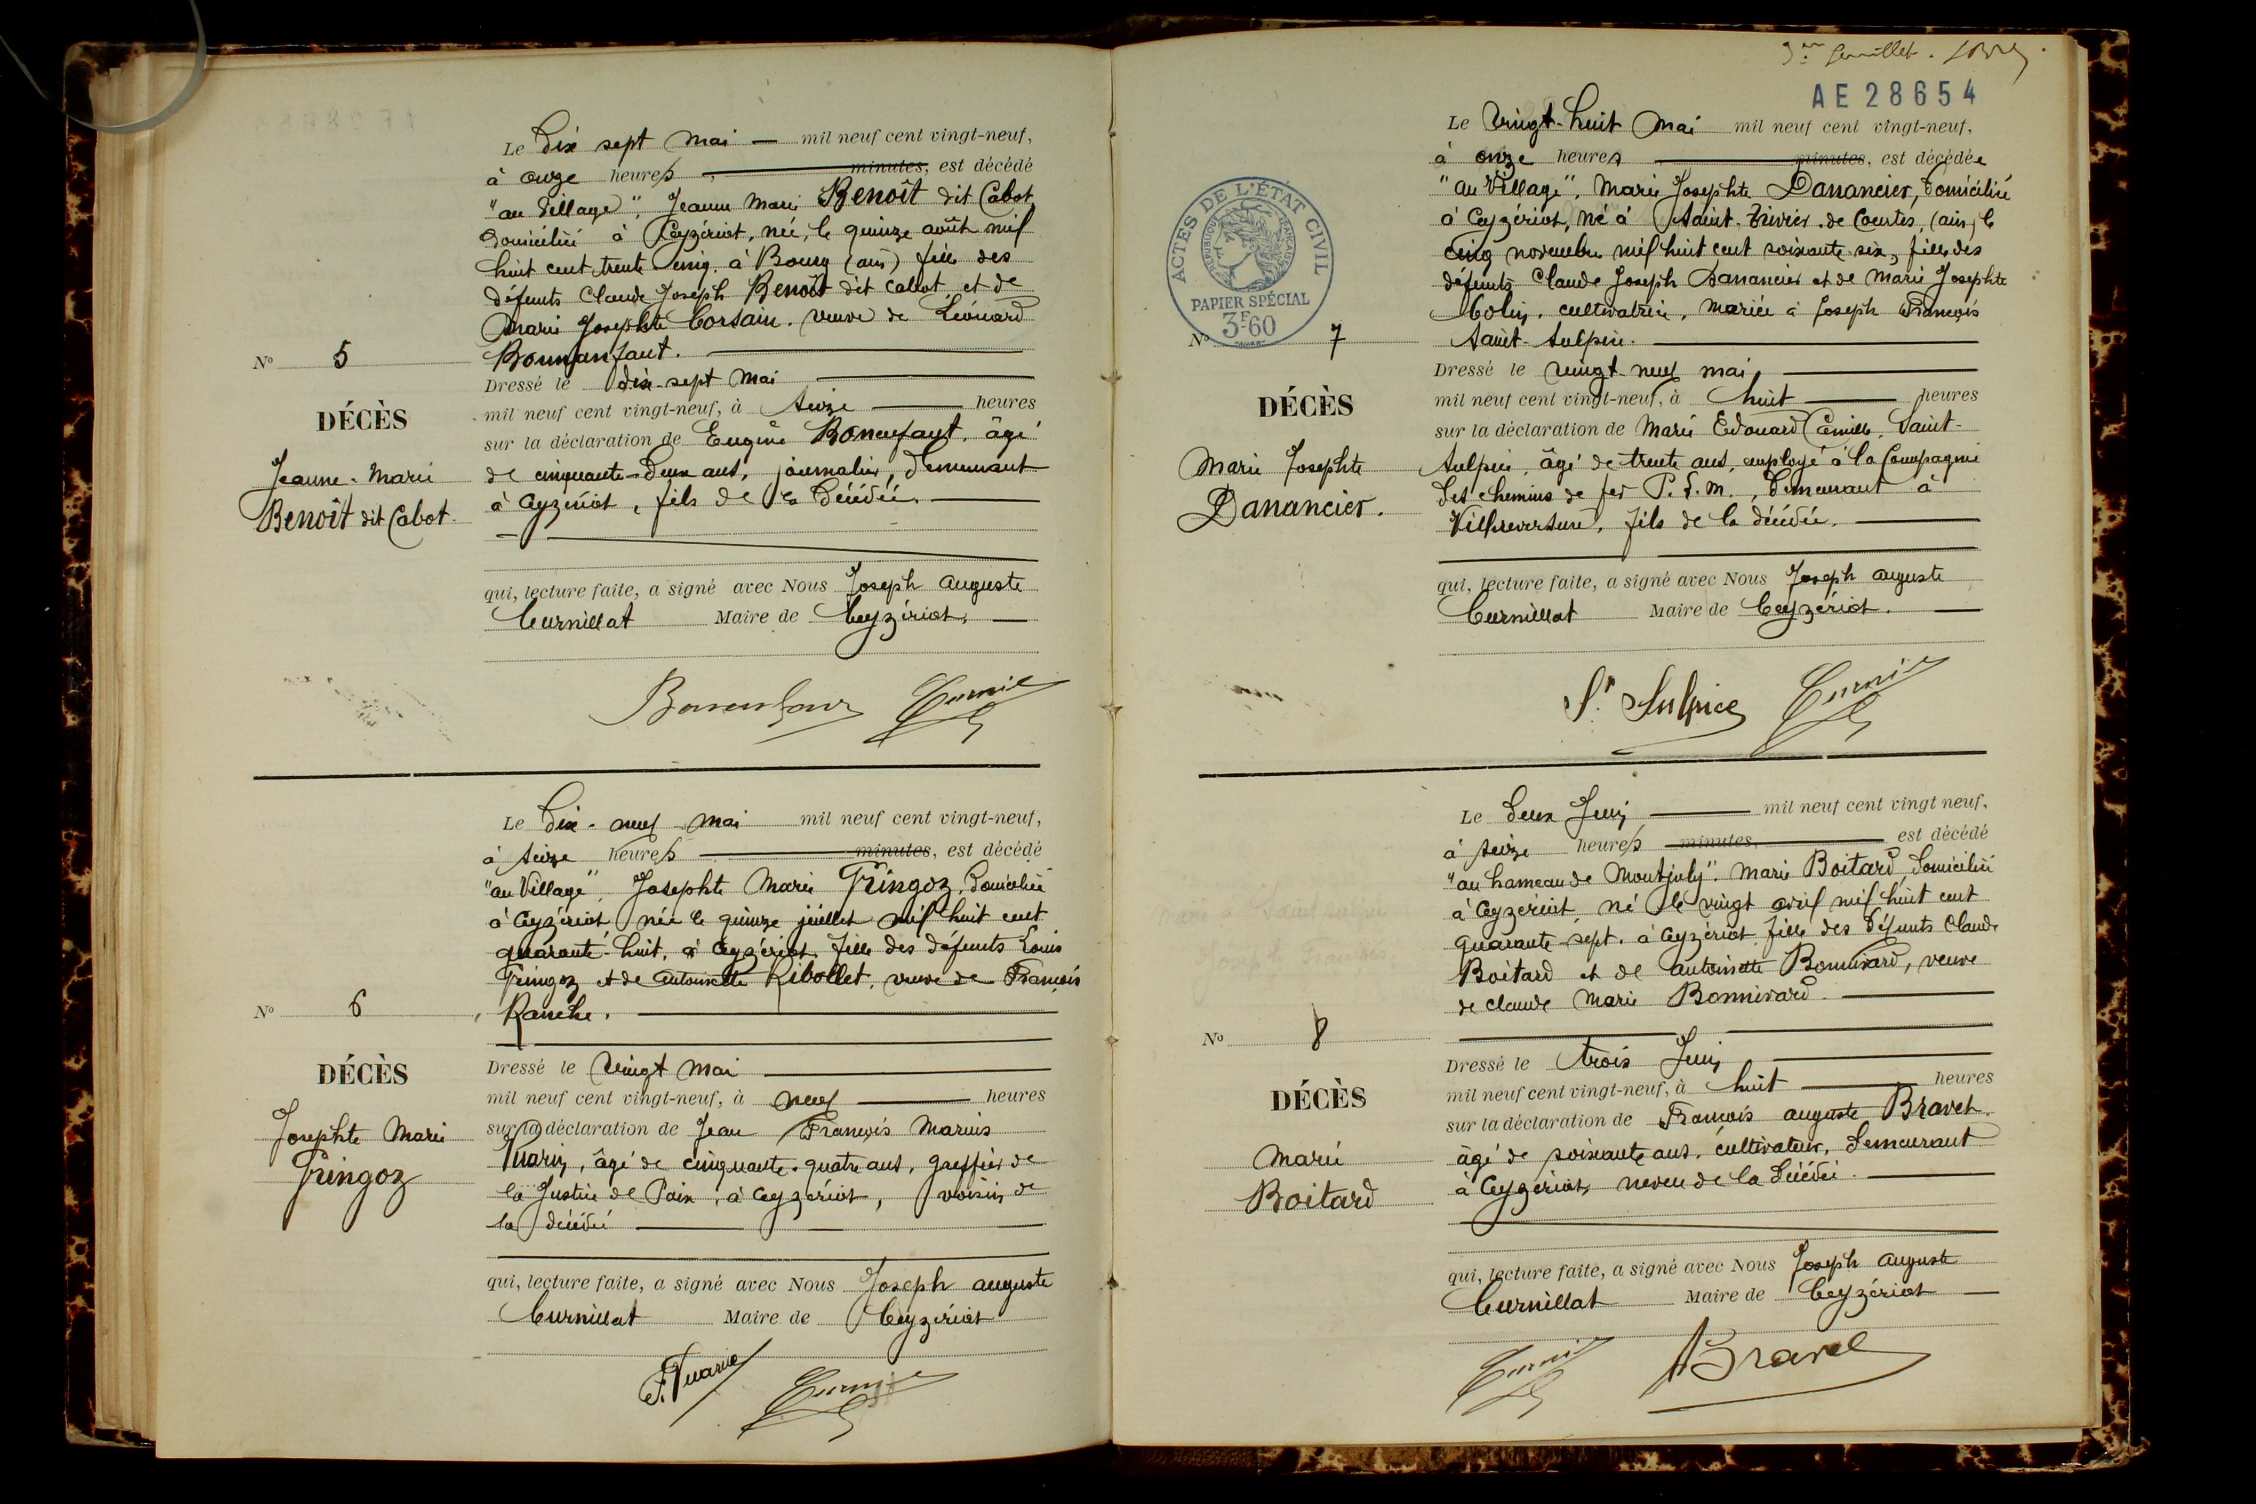 Le Dix sept Mai — mil neuf cent vingt-neuf,
à onze heures minutes, est décédé
"au Village", Jeanne Marie Benoît dit Cabot
domiciliée à Ceyzériat, née, le quinze août mil
huit cent trente cinq à Bourg (ain) fille des
défunts Claude Joseph Benoît dit Cabot et de
Marie Josephte Corsain. veuve de Léonard
Bonnenfant.
N° 5
Dressé le dix-sept Mai
mil neuf cent vingt-neuf, à seize heures
DÉCÈS
sur la déclaration de Eugène Bonenfant, âgé
Jeanne-Marie
de cinquante-deux ans, journalier, demeurant
à Ceyzériat, fils de la décédée.
Benoît dit Cabot.
qui, lecture faite, a signé avec Nous Joseph auguste
Curnillat Maire de Ceyzériat.
Le Dix-neuf Mai mil neuf cent vingt-neuf,
à seize heures minutes, est décédé
"au Village", Josephte Marie Fringoz, domiciliée
à Ceyzériat, née le quinze juillet mil huit cent
quarante-huit, à Ceyzériat, fille des défunts Louis
Fringoz et de Antoinette Ribollet, veuve de François
N° 6
Ranche.
Dressé le vingt Mai
DÉCÈS
mil neuf cent vingt-neuf, à neuf heures
Josephte Marie
sur la déclaration de Jean François Marius
Fringoz
Vuarin, âgé de cinquante-quatre ans, greffier de
la Justice de Paix, à Ceyzériat, voisin de
la décédée
qui, lecture faite, a signé avec Nous Joseph auguste
Curnillat Maire de Ceyzériat
F. Vuarin
3me feuillet.
AE 28654
Le vingt-huit Mai mil neuf cent vingt-neuf,
à onze heures minutes, est décédée
"au Village", Marie Josephte Danancier, domiciliée
à Ceyzériat, né à Saint-Trivier-de-Courtes, (ain) le
cinq novembre mil huit cent soixante-six, fille des
défunts Claude Joseph Danancier et de Marie Josephte
Colin, cultivatrice, mariée à Joseph François
Saint-Sulpice.
ACTES DE L'ÉTAT CIVIL
RÉPUBLIQUE FRANÇAISE
PAPIER SPÉCIAL
3F60
N° 7
Dressé le vingt-neuf mai,
DÉCÈS
mil neuf cent vingt-neuf, à huit heures
sur la déclaration de Marie Edouard Camille, Saint-
Marie Josephte
Sulpice, âgé de trente ans, employé à la Compagnie
des chemins de fer P.L.M., demeurant à
Danancier.
Villereversure, fils de la décédée.
qui, lecture faite, a signé avec Nous Joseph auguste
Curnillat Maire de Ceyzériat.
St Sulpice
Le deux Juin mil neuf cent vingt neuf,
à seize heures minutes, est décédé
"au hameau de Montjuly". Marie Boitard domiciliée
à Ceyzériat, né le vingt avril mil huit cent
quarante-sept, à Ceyzériat fille des défunts Claude
Boitard et de Antoinette Bonnivard, veuve
de Claude Marie Bonnivard.
N° 8
Dressé le trois Juin
DÉCÈS
mil neuf cent vingt-neuf, à huit heures
sur la déclaration de François auguste Bravet.
Marie
âgé de soixante ans, cultivateur, demeurant
Boitard
à Ceyzériat, neveu de la décédée.
qui, lecture faite, a signé avec Nous Joseph Auguste
Curnillat Maire de Ceyzériat